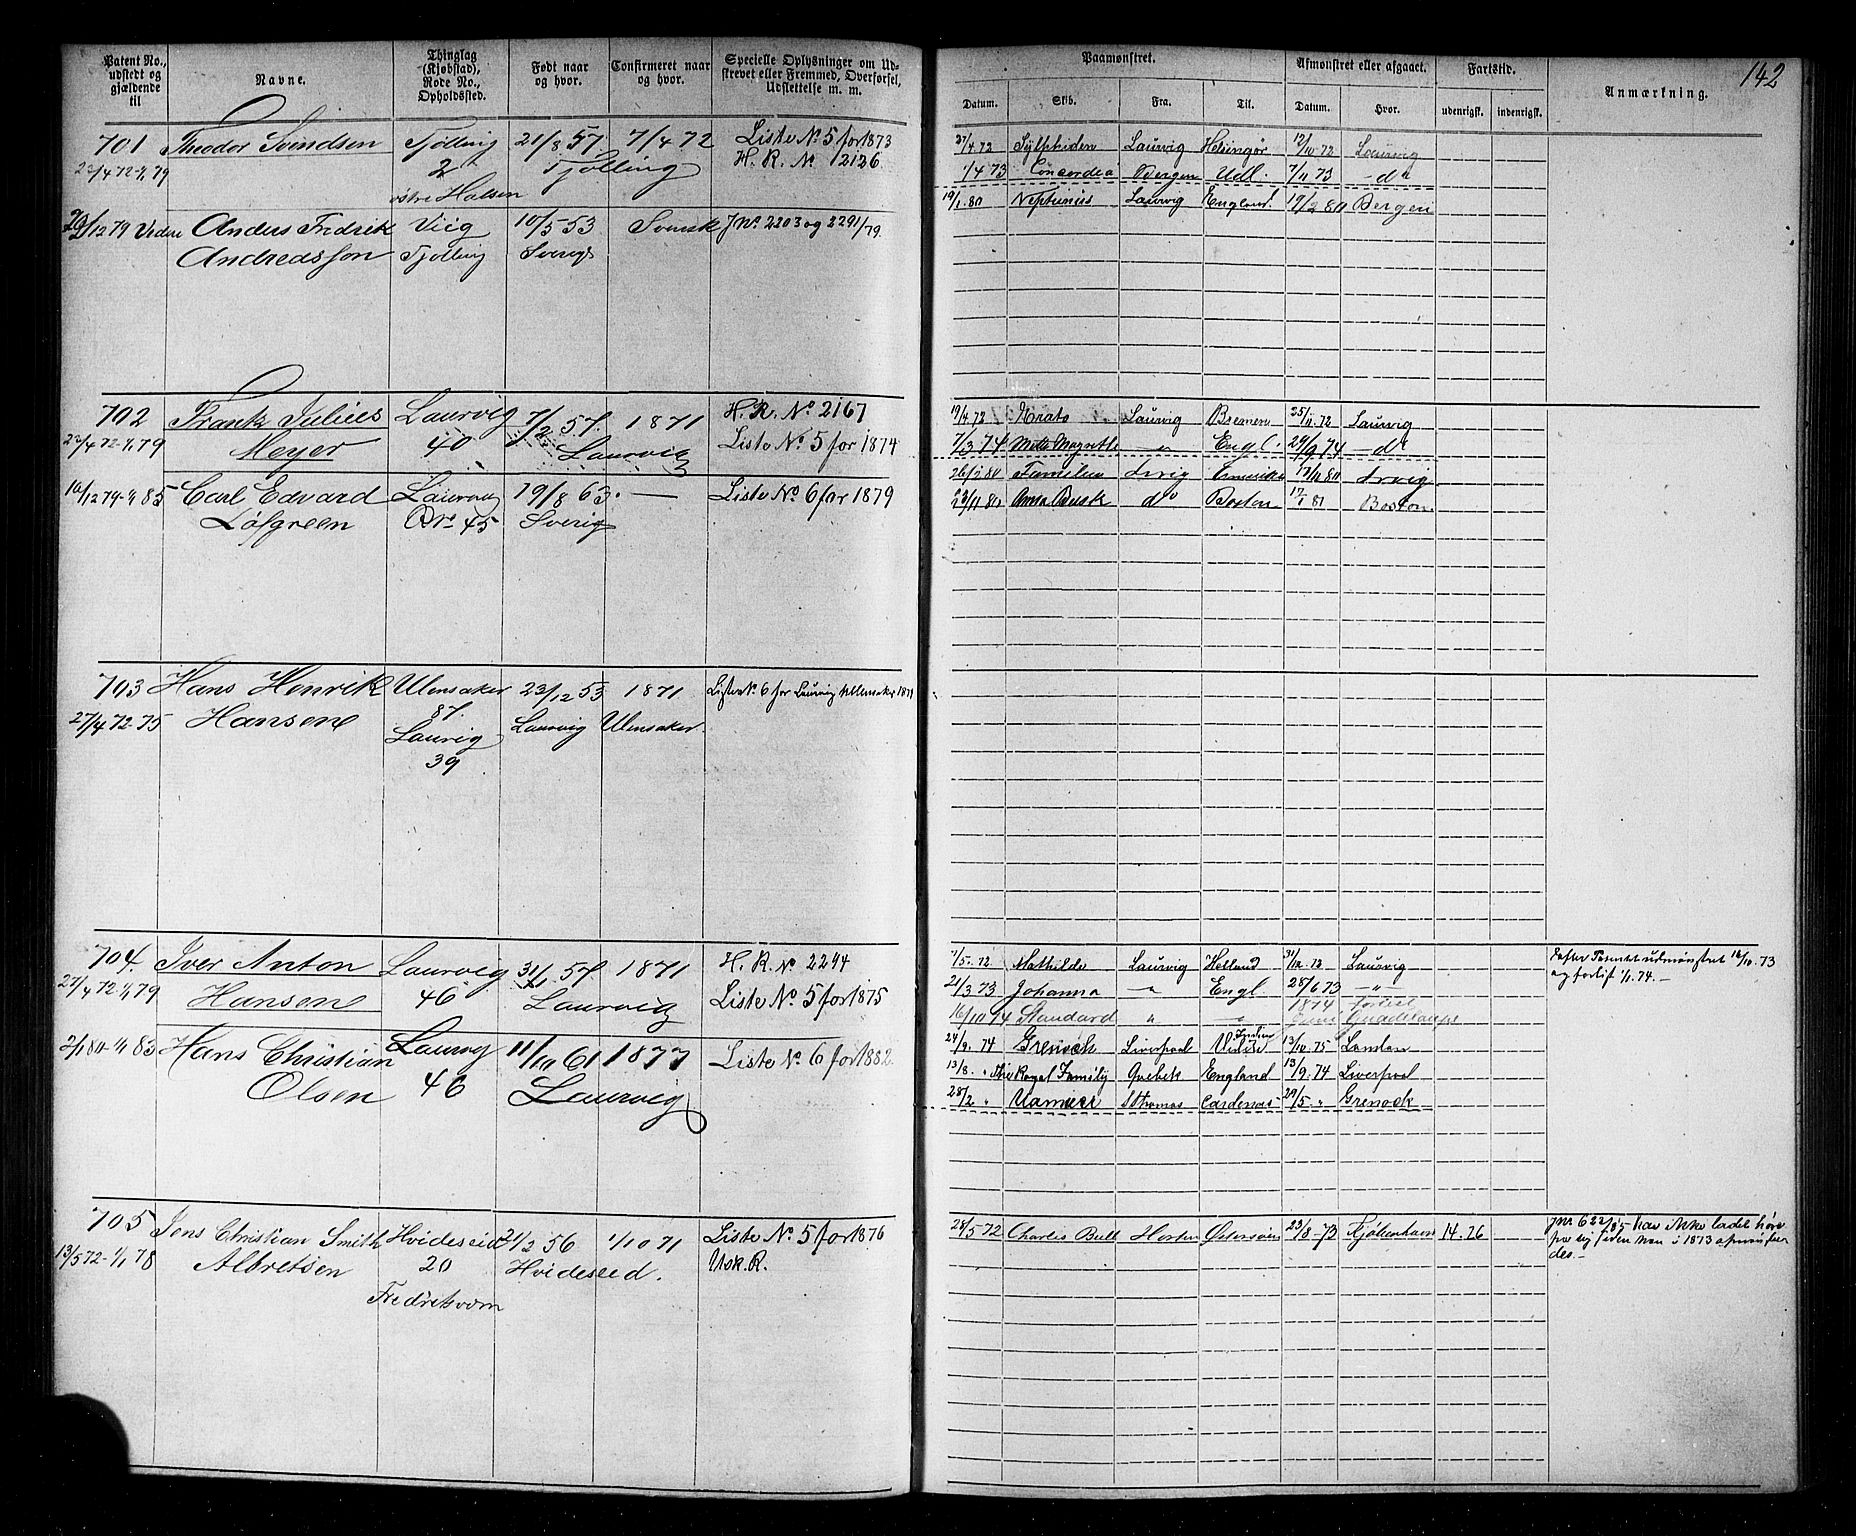 142
Patent No., udstedt og gjældende til
Navne.
Thinglag (Kjøbstad), Rode No., Opholdssted.
Født naar og hvor.
Confirmeret naar og hvor.
Specielle Oplysninger om Udstrevet eller Fremmed, Overførsel, Udslettelse m. m.
Paamønstret.
Afmønstret eller afgaaet.
Fartstid.
Anmærkning.
Datum. Skib. Fra. Til. Datum. Hvor. udenrigsk. indenrigsk.
701 Theodor Svendsen Tjølling 21/8 57 7/4 72 Liste No 5 for 1873
22/4 72-1/1 79 2 Tjølling H. R. No 2126
østre Halsen
27/4 72 Sylphiden Laurvig Helsingør 12/10 72 Laurvig
1/4 73 Concordia Bergen Udl. 7/11 73 - do
31/12 79 Anders Fredrik Viig 10/5 53 Svensk J No 2203 og 2291/79.
Andreasson Tjølling Sverig
19/1 80 Neptunus Laurvig England. 19/2 80 Bergen
702 Frank Julius Laurvig 7/2 57. 1871 H. R. No 2167
22/4 72-1/1 79 Meyer 40 Laurvig Liste No 5 for 1874
19/4 72 Laurvig Bremen 25/11 72 Laurvig
7/3 74 Mette Magrethe " Engl. 29/9 74 - do
16/12 79-1/1 85 Carl Edvard Laurvig 19/8 63. — Liste No 6 for 1879
Løfgreen No 45 Sverig
26/2 80 Familien Lrvig 12/11 80 Lrvig
23/11 80 Anna Busk do Boston 17/1 81 Boston.
703 Hans Henrik Ulensaker 23/12 53 1871 Liste No 6 for Laurvig Ullensaker 1871
27/4 72-75 Hansen 87. Laurvig Ulensaker.
Laurvig
39
704. Iver Anton Laurvig 31/1 57 1871 H. R. No 2294
27/4 72-1/1 79 Hansen 46 Laurvig Liste No 5 for 1875
7/5. 72 Mathilde Laurvig Holland 31/12. 72 Laurvig
21/3 73 Johanna " Engl 28/6 73 - " -
16/10 74 Standard " " 1874 Juni Guadeloupe
24/9. 74 Grenock Liverpool 13/10. 75 London
13/8. " The Royal Family Qvebek England 13/9. 74 Liverpool
28/2 " St Thomas Cardenas 29/5. " Grenock
2/1 80-1/1 83 Hans Christian Laurvig 11/10 61 1877 Liste No 6 for 1882.
Olsen 46 Laurvig
705 Jens Christian Smith Hvideseid 21/2 56 1/10 71 Liste No 5 for 1876
13/5 72-1/1 78 Albretsen 20 Hvideseid. Usk. R.
Fredriksværn
28/5 72 Charles Bull Horten Østersøen 23/8-73 Kjøbenhavn 14.26 J.nr 622/85 har ikke ladet høre
fra sig siden han i 1873
des.-